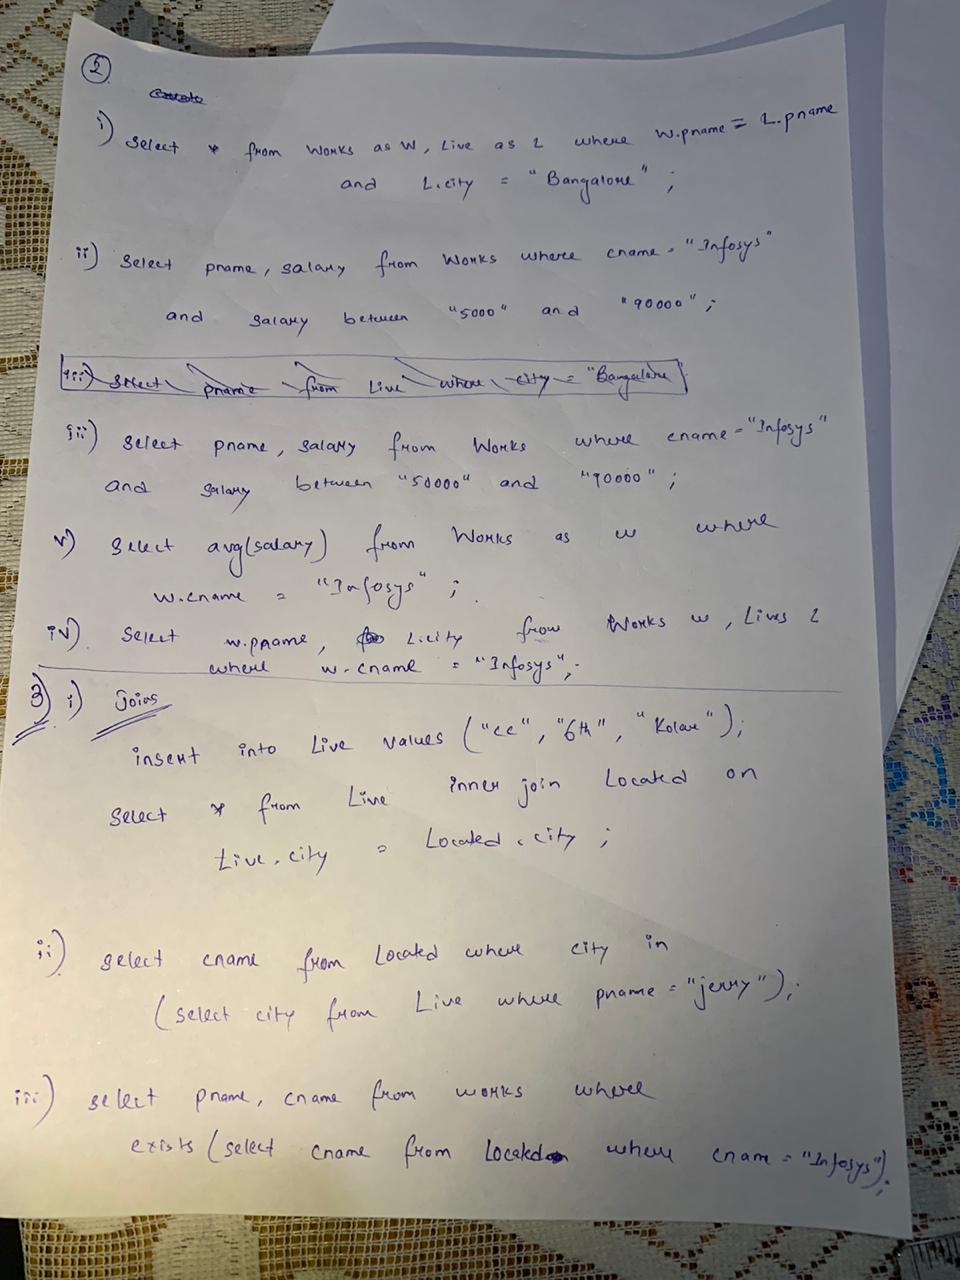 2
i) select * from Works as W, Live as L where W.pname = L.pname
and L.city = "Bangalore" ;
ii) select pname, salary from Works where cname = "Infosys"
and salary between "5000" and "90000" ;
iii) select pname from Live where city = "Bangalore"
iii) select pname, salary from Works where cname = "Infosys"
and salary between "50000" and "90000" ;
v) select avg(salary) from Works as w where
w.cname = "Infosys" ;
iv) select w.pname, L.city from Works w, Lives L
where w.cname = "Infosys";
3) i) Joins
insert into Live values ("cc", "6th", "Kolar");
select * from Live inner join Located on
Live.city = Located.city ;
ii) select cname from Located where city in
(select city from Live where pname = "jerry");
iii) select pname, cname from works where
exists (select cname from Located where cname = "Infosys");